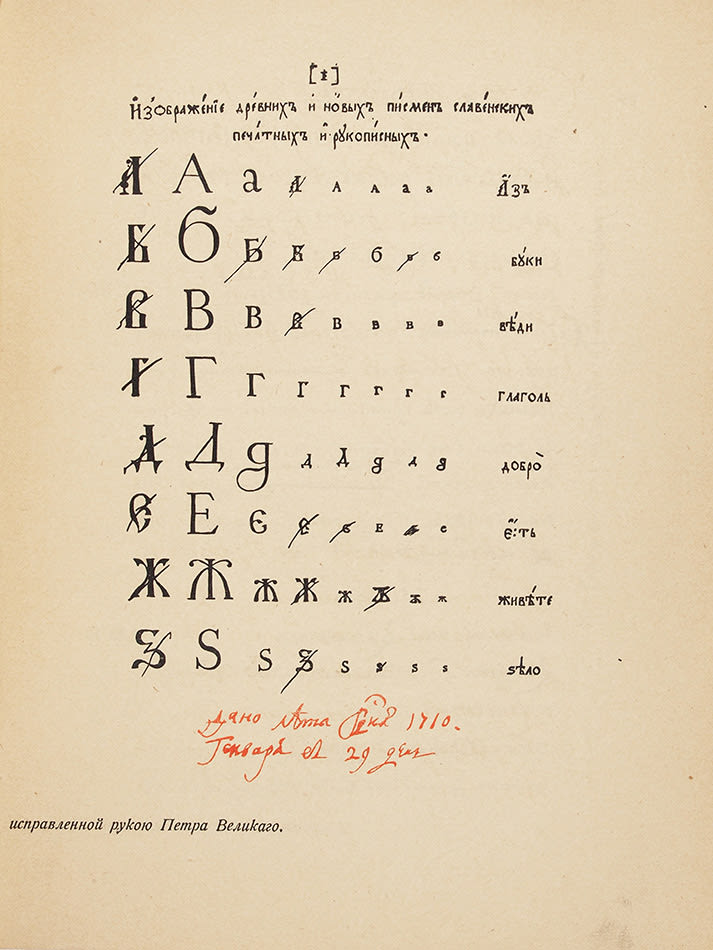 [1]
И҆зображе́нїе дре́внихъ и҆ но́выхъ пи́сменъ славе́нскихъ
печа́тныхъ и҆ рукопи́сныхъ.
А А а А А А а а А҆́зъ
Б б Б Б Б б б б бу́ки
В В В В В В В В вѣ́ди
Г Г Г Г Г Г Г Г глаголь
Д Д д д Д д д д добро̀
Є Е є є є е е є҆́:ть
Ж Ж ж Ж ж ж ж ж живѣ́те
Ѕ Ѕ ѕ ѕ ѕ ѕ ѕ ѕ ѕѣло
дано лѣта 1710.
Генваря 29 день
исправленной рукою Петра Великаго.